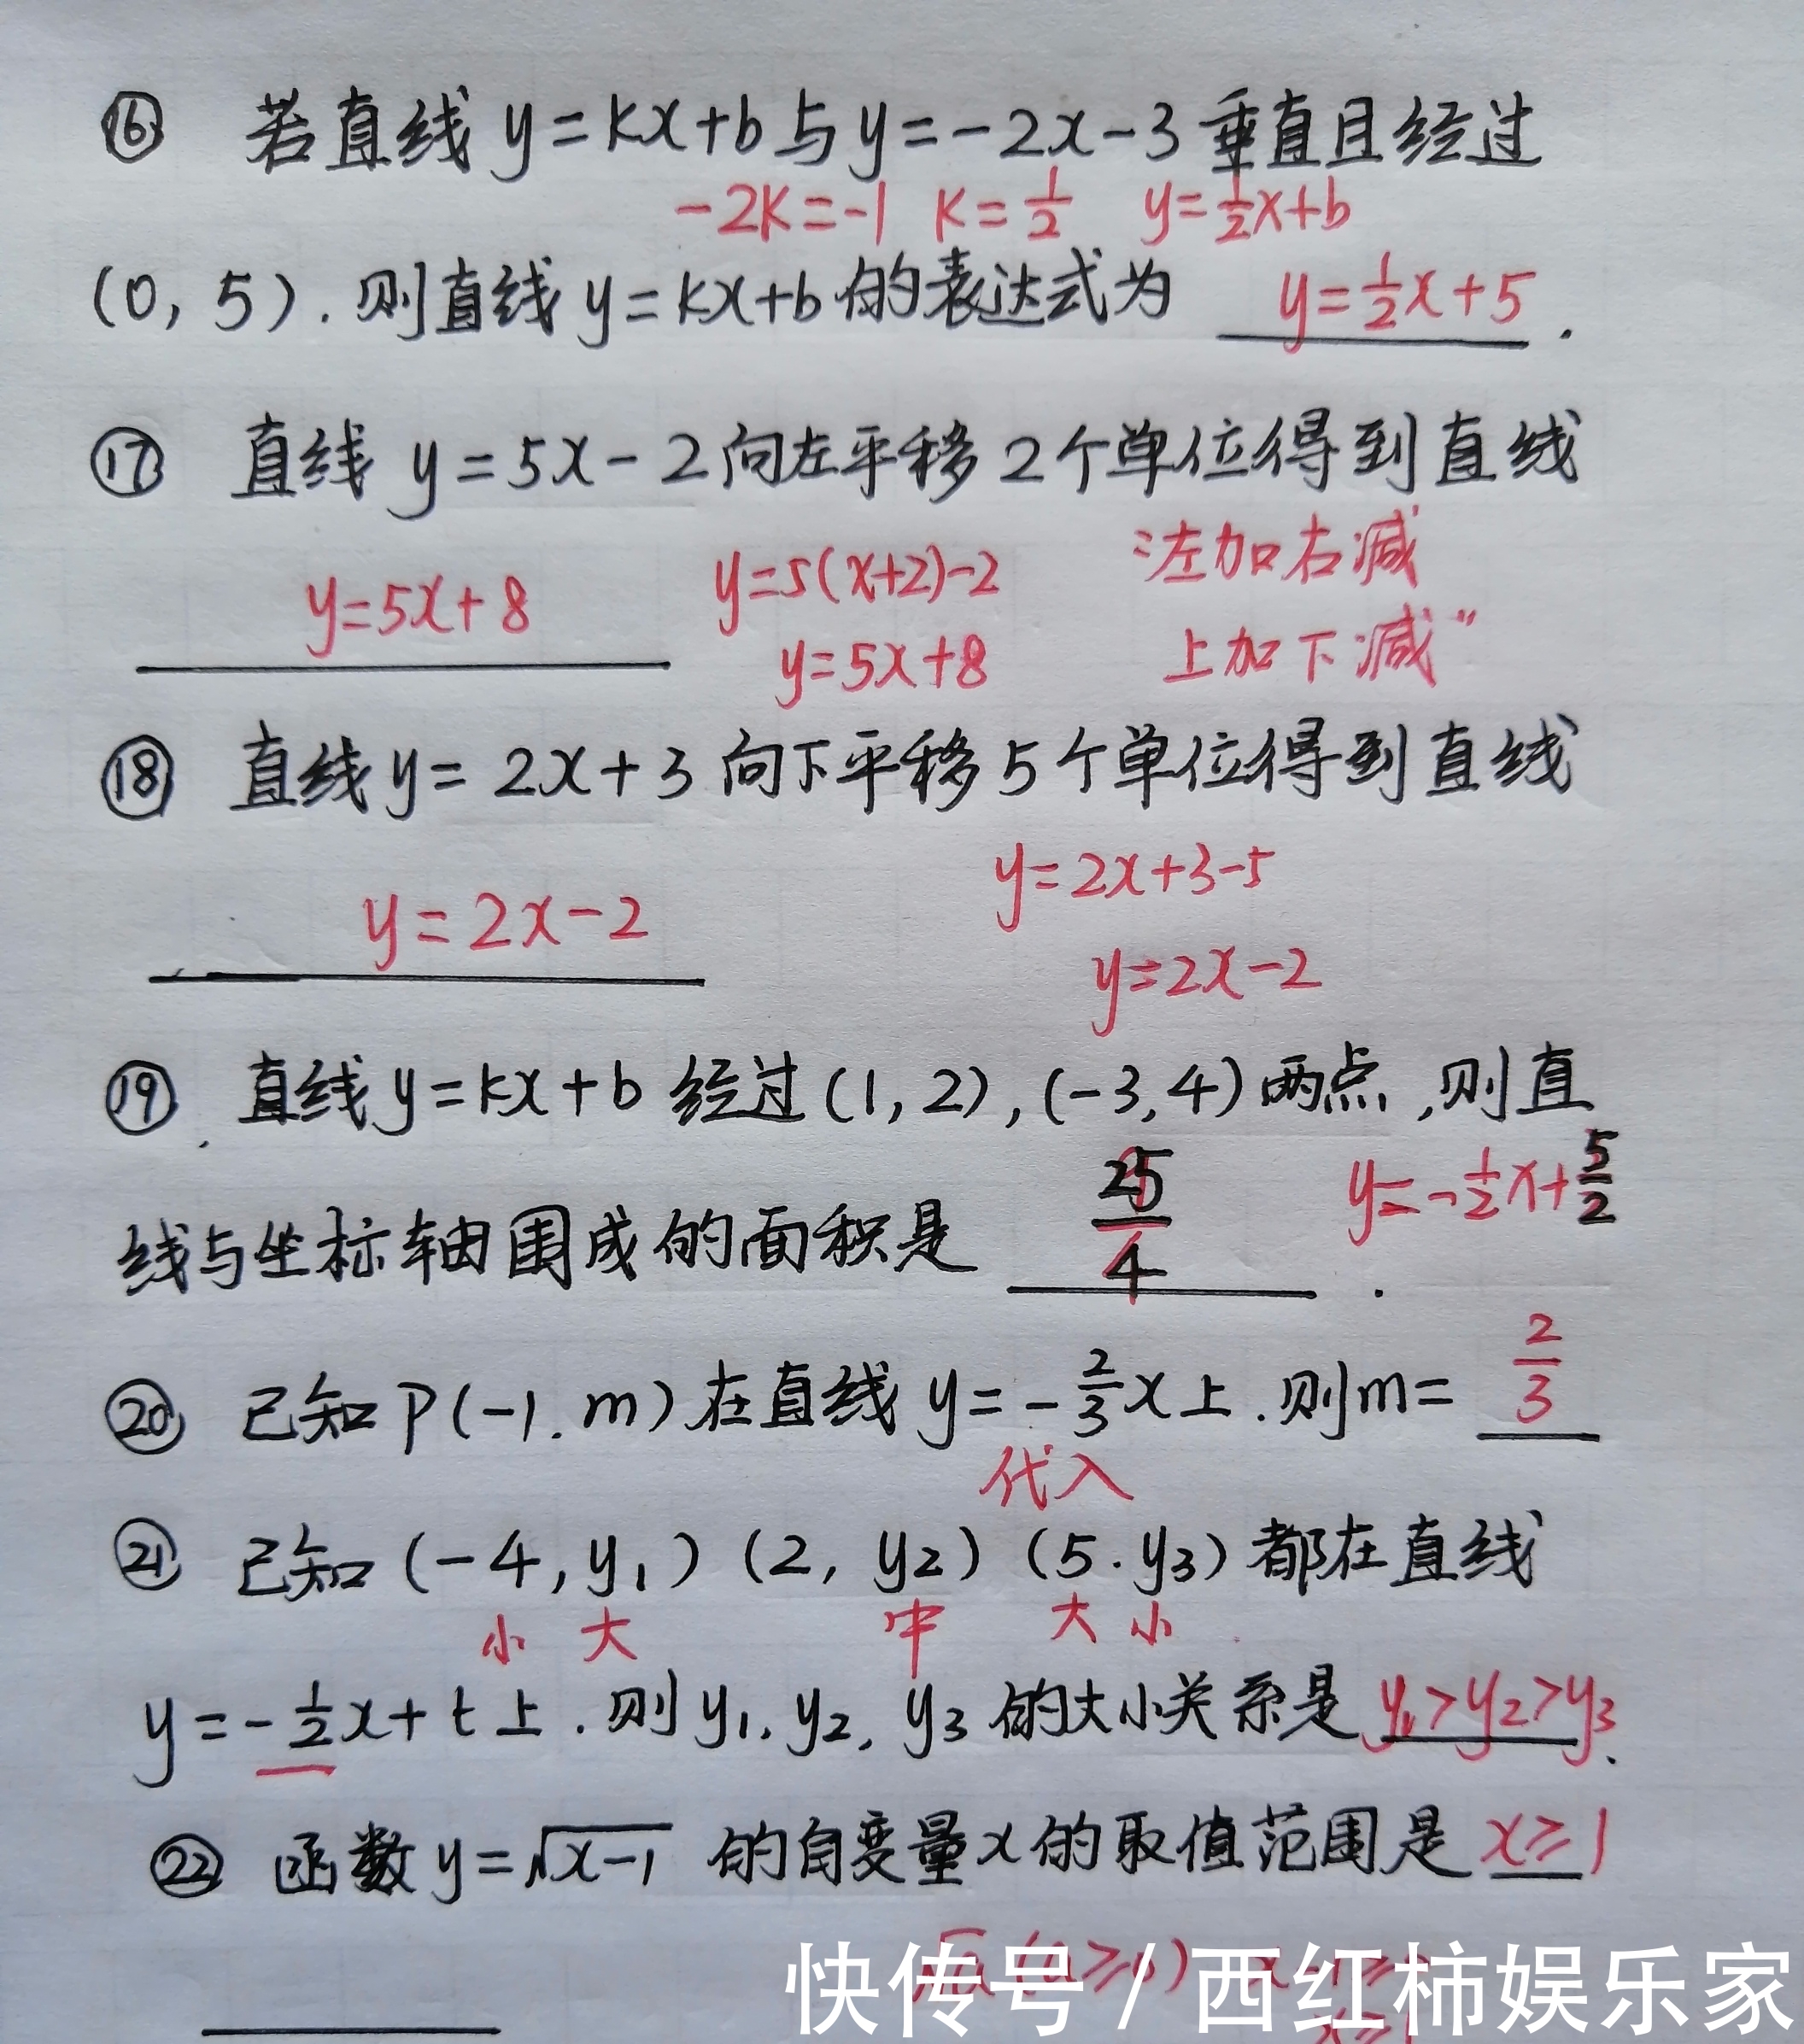 ⑯ 若直线 y=kx+b 与 y=-2x-3 垂直且经过
-2k=-1 k=1/2 y=1/2x+b
(0, 5). 则直线 y=kx+b 的表达式为 y=1/2x+5.
⑰ 直线 y=5x-2 向左平移 2个单位得到直线
y=5(x+2)-2 “左加右减
y=5x+8
y=5x+8 上加下减”
⑱ 直线 y=2x+3 向下平移 5个单位得到直线
y=2x+3-5
y=2x-2
y=2x-2
⑲ 直线 y=kx+b 经过 (1, 2), (-3, 4) 两点, 则直
线与坐标轴围成的面积是 25/4 . y=-1/2x+5/2
⑳ 已知 P(-1. m) 在直线 y=-2/3x 上. 则 m= 2/3
代入
㉑ 已知 (-4, y₁) (2, y₂) (5. y₃) 都在直线
小 大 中 大 小
y=-1/2x+t 上. 则 y₁. y₂, y₃ 的大小关系是 y₁>y₂>y₃.
㉒ 函数 y=√(x-1) 的自变量 x 的取值范围是 x≥1
快传号 / 西红柿娱乐家